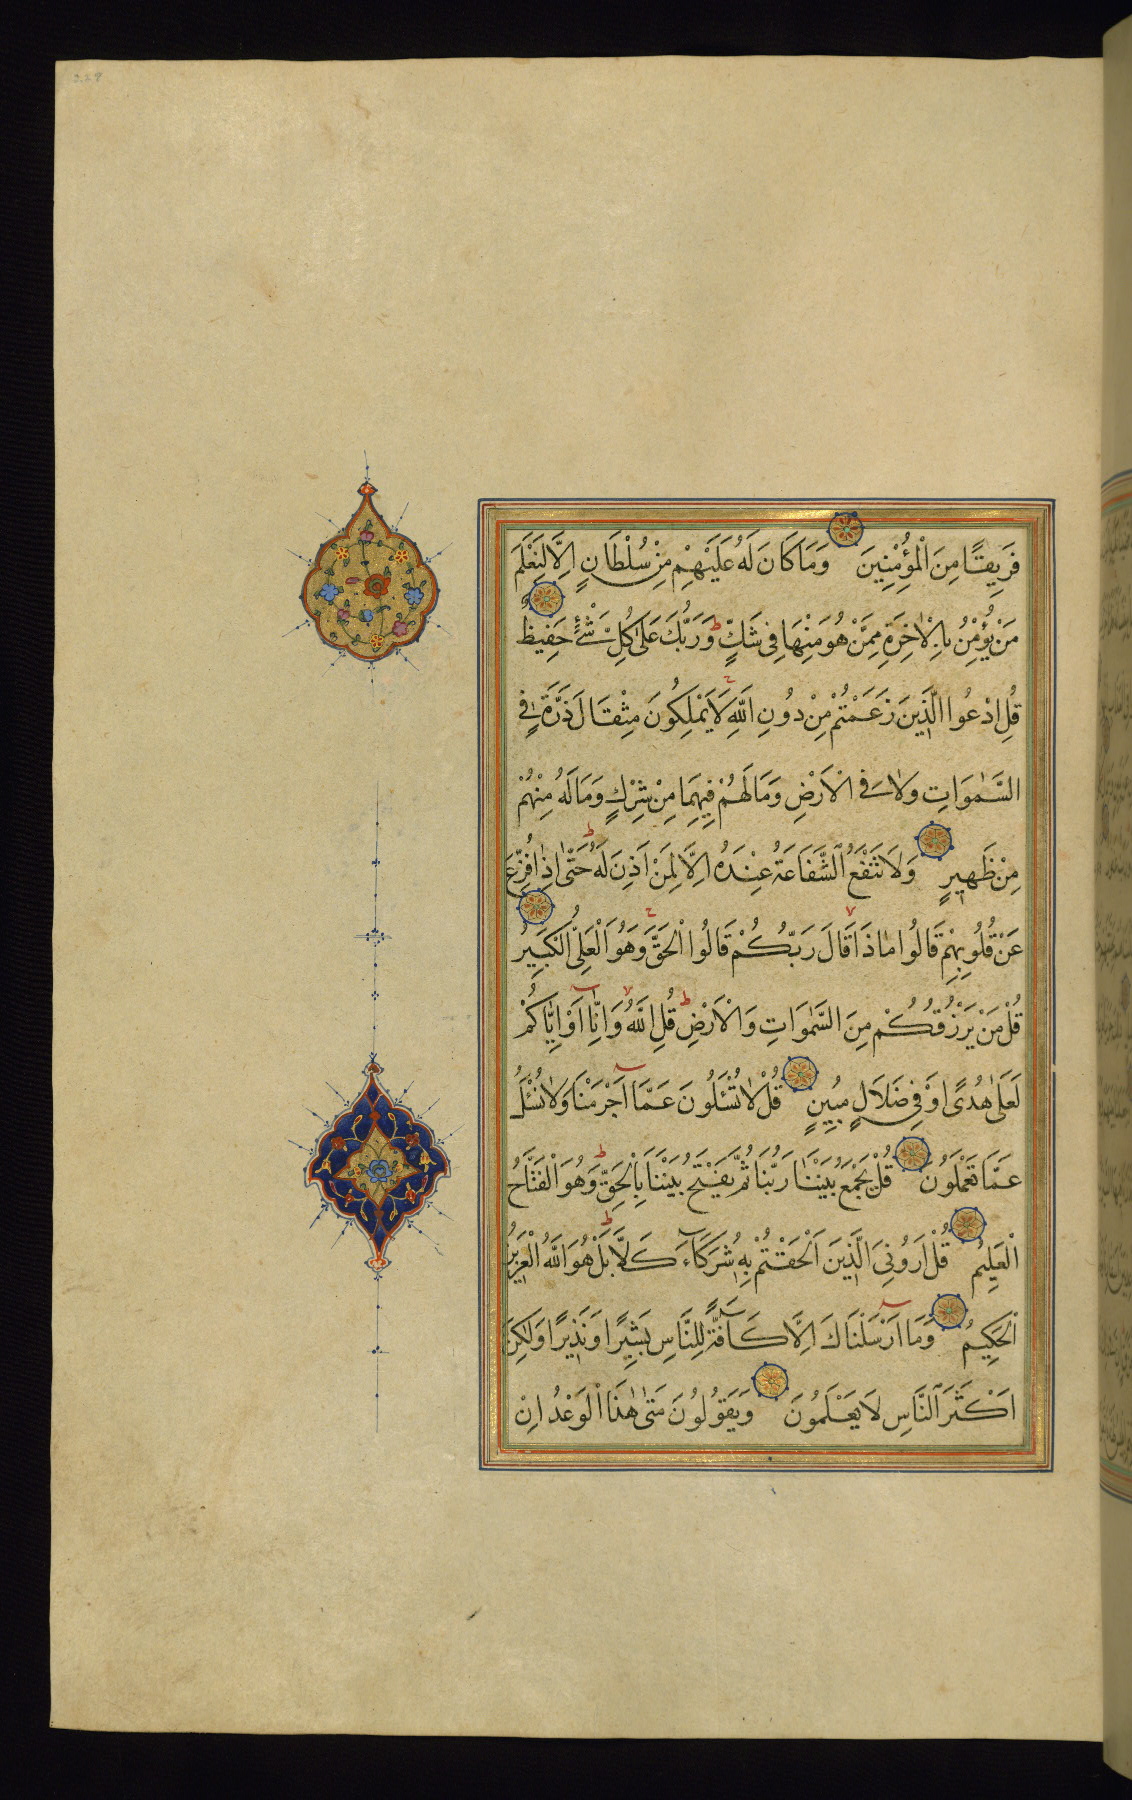 فَرِيقًا مِنَ الْمُؤْمِنِينَ وَمَا كَانَ لَهُ عَلَيْهِمْ مِنْ سُلْطَانٍ اِلَّا لِنَعْلَمَ
مَنْ يُؤْمِنُ بِالْاٰخِرَةِ مِمَّنْ هُوَ مِنْهَا فِى شَكٍّ ط وَرَبُّكَ عَلٰى كُلِّ شَىْءٍ حَفِيظٌ
قُلِ ادْعُوا الَّذِينَ زَعَمْتُمْ مِنْ دُونِ اللّٰهِ لَا يَمْلِكُونَ مِثْقَالَ ذَرَّةٍ فِى
السَّمٰوَاتِ وَلَا فِى الْاَرْضِ وَمَا لَهُمْ فِيهِمَا مِنْ شِرْكٍ وَمَا لَهُ مِنْهُمْ
مِنْ ظَهِيرٍ وَلَا تَنْفَعُ الشَّفَاعَةُ عِنْدَهُ اِلَّا لِمَنْ اَذِنَ لَهُ ط حَتّٰى اِذَا فُزِّعَ
عَنْ قُلُوبِهِمْ قَالُوا مَاذَا قَالَ رَبُّكُمْ قَالُوا الْحَقَّ وَهُوَ الْعَلِىُّ الْكَبِيرُ
قُلْ مَنْ يَرْزُقُكُمْ مِنَ السَّمٰوَاتِ وَالْاَرْضِ ط قُلِ اللّٰهُ وَاِنَّا اَوْ اِيَّاكُمْ
لَعَلٰى هُدًى اَوْ فِى ضَلَالٍ مُبِينٍ قُلْ لَا تُسْئَلُونَ عَمَّا اَجْرَمْنَا وَلَا نُسْئَلُ
عَمَّا تَعْمَلُونَ قُلْ يَجْمَعُ بَيْنَنَا رَبُّنَا ثُمَّ يَفْتَحُ بَيْنَنَا بِالْحَقِّ ط وَهُوَ الْفَتَّاحُ
الْعَلِيمُ قُلْ اَرُونِىَ الَّذِينَ اَلْحَقْتُمْ بِهِ شُرَكَاءَ كَلَّا ط بَلْ هُوَ اللّٰهُ الْعَزِيزُ
الْحَكِيمُ وَمَا اَرْسَلْنَاكَ اِلَّا كَافَّةً لِلنَّاسِ بَشِيرًا وَنَذِيرًا وَلٰكِنَّ
اَكْثَرَ النَّاسِ لَا يَعْلَمُونَ وَيَقُولُونَ مَتٰى هٰذَا الْوَعْدُ اِنْ